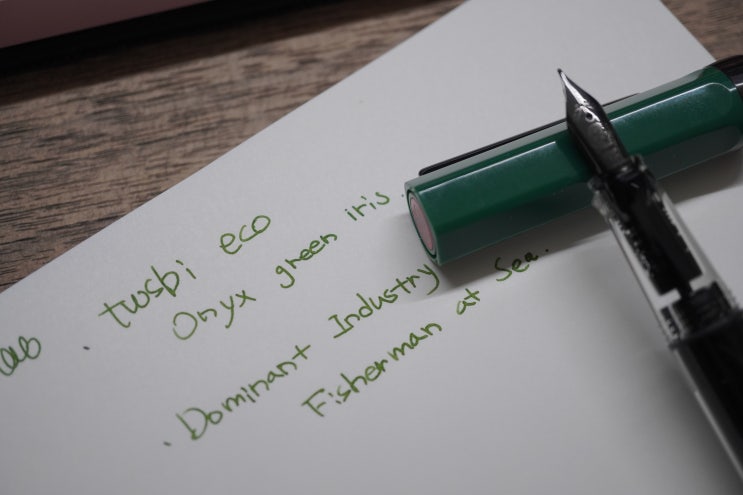 . twsbi eco
Onyx green iris
. Dominant Industry
Fisherman at Sea.